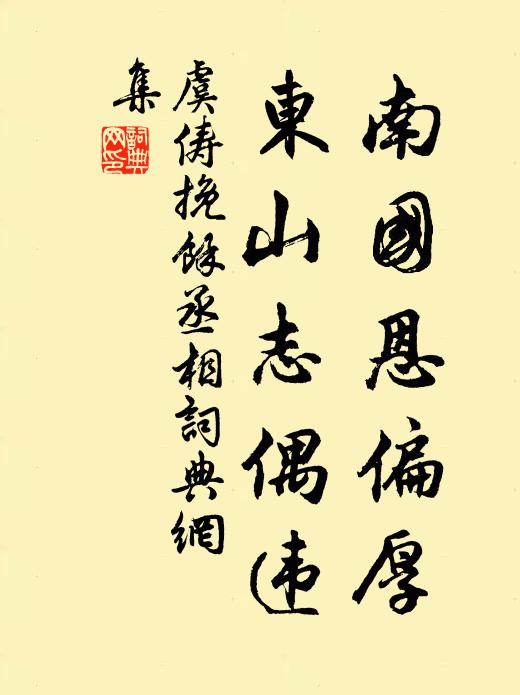 南國恩偏厚
東山志偶违
虞儔挽餘丞相詞典網
集
詞典
网印